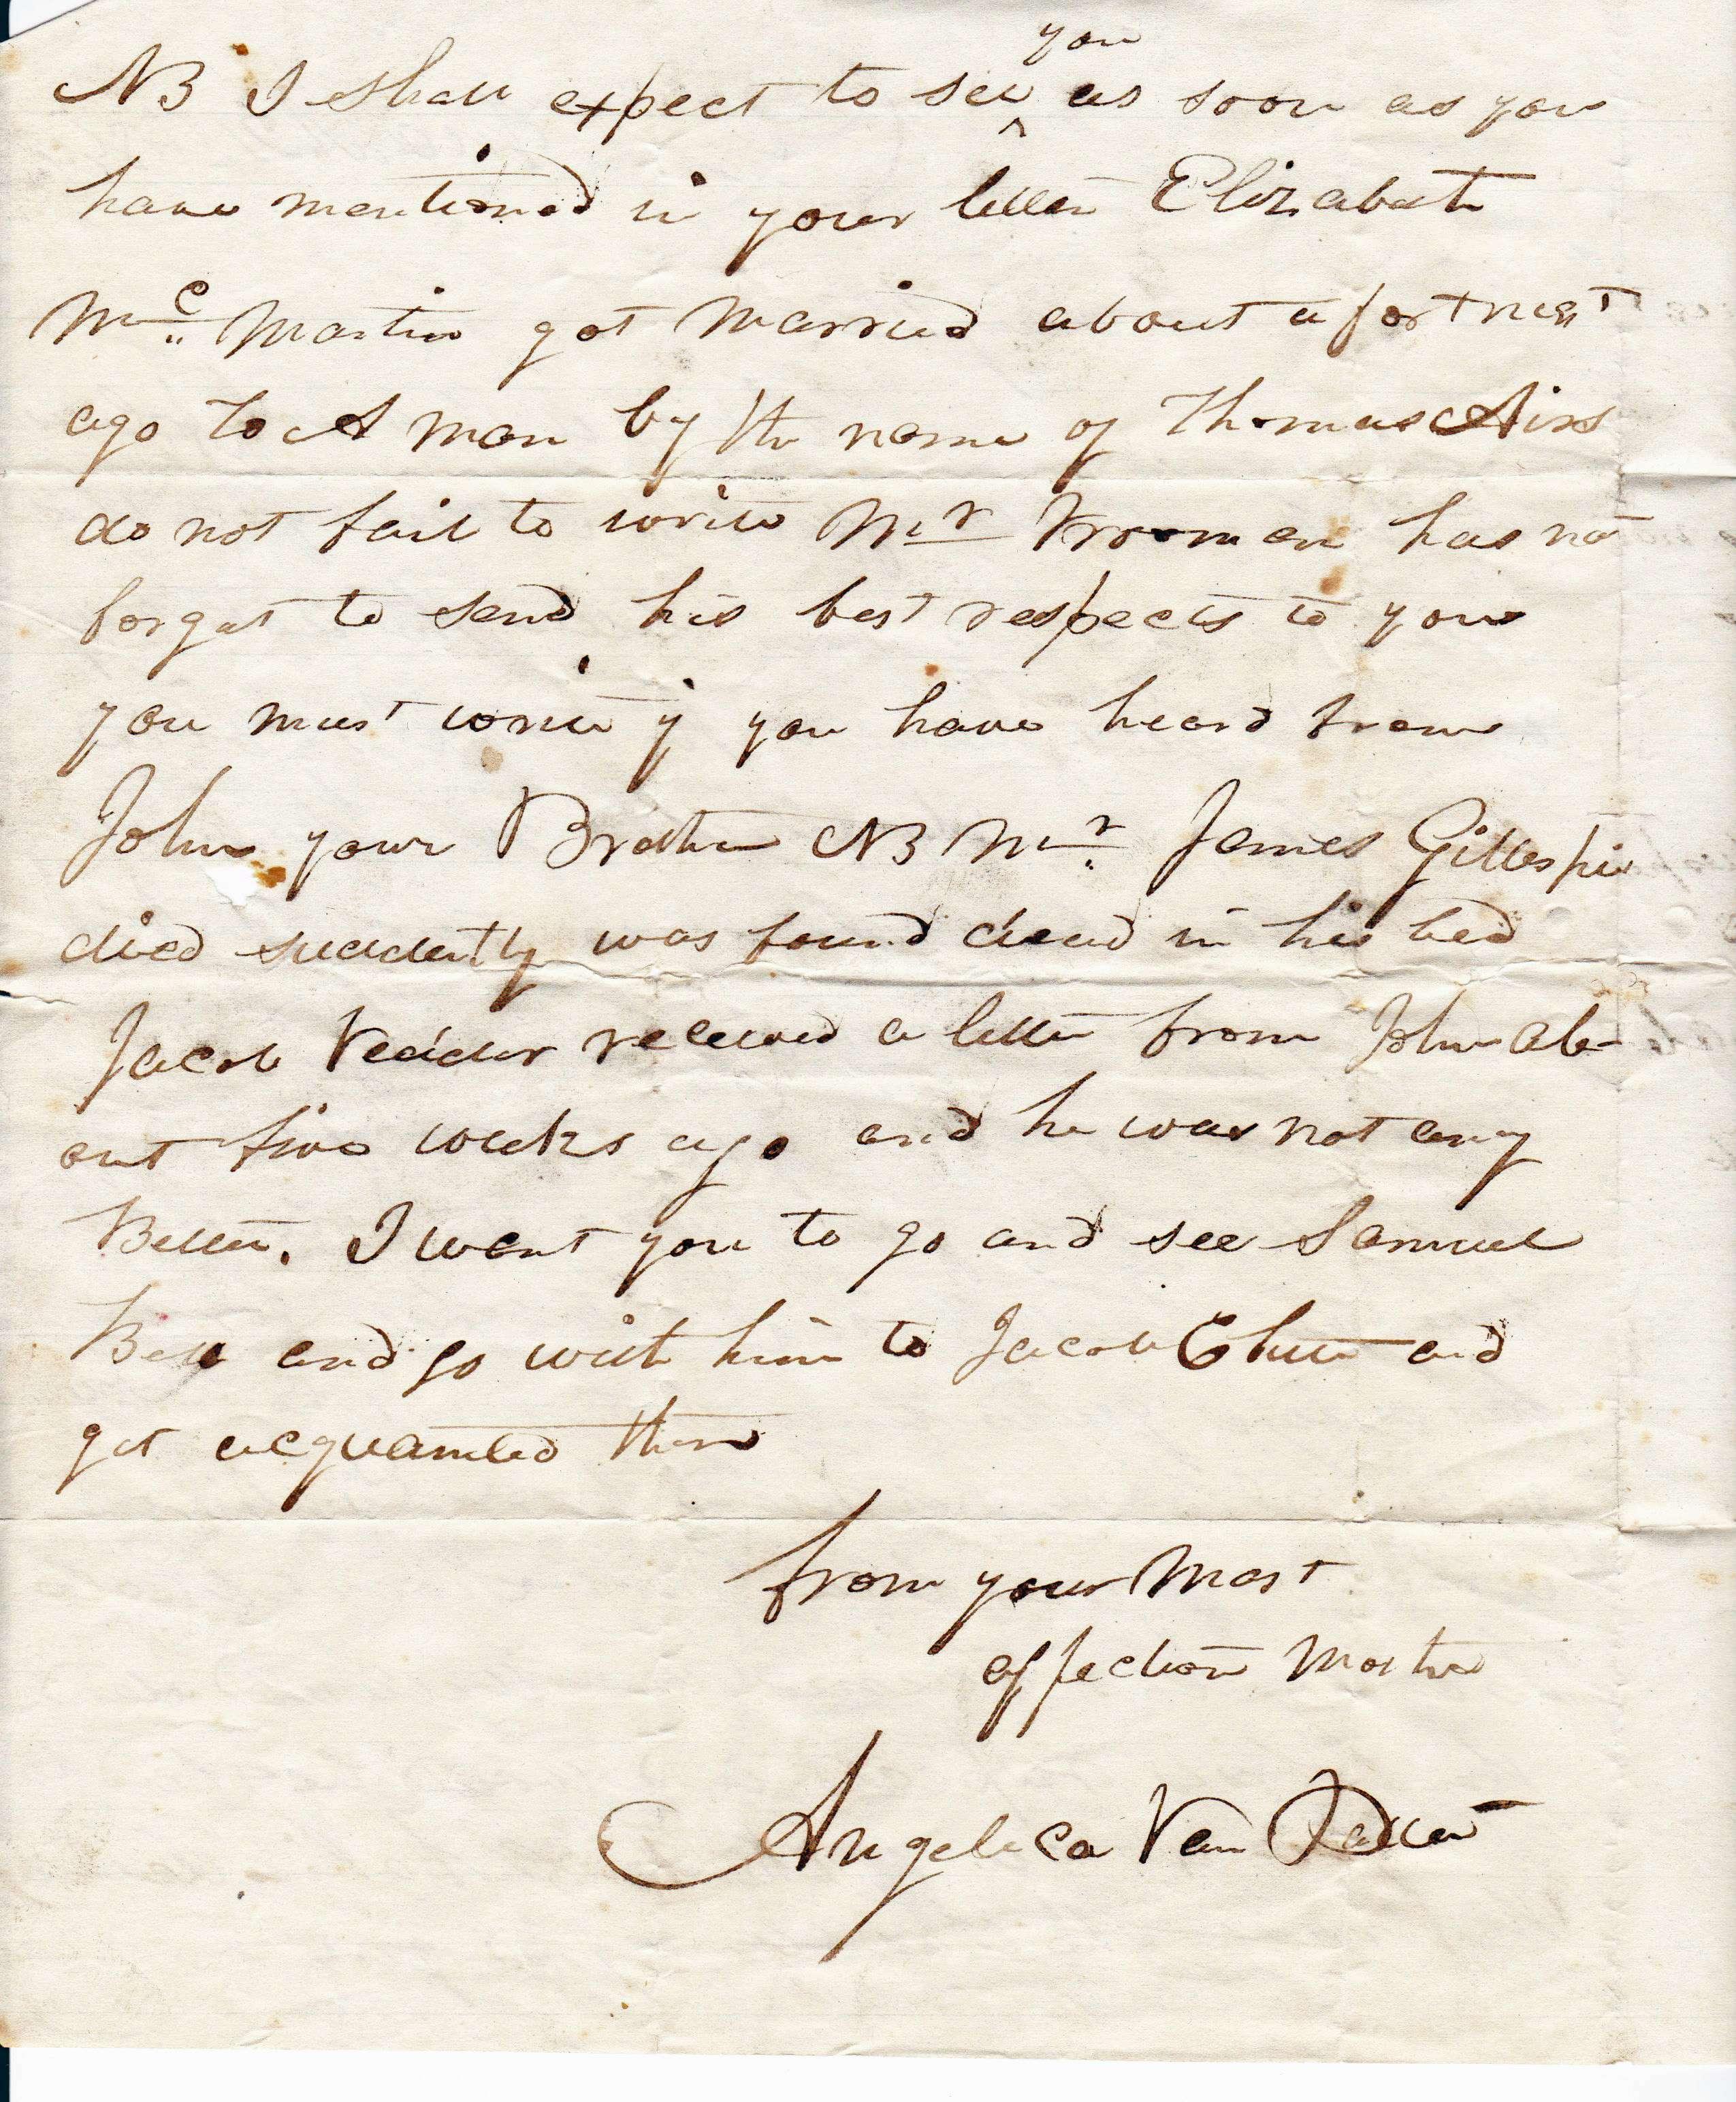 NB I Shall expect to see ^you as soon as you
have mentioned in your letter Elizabeth
Mc Martin got Married about a fortneat
ago to A man by the name of Thomas Airs
do not fail to write Mr Vrooman has not
forgat to send his best respects to you
you must write if you have heard from
John your Brother NB Mr James Gillespie
died suddently was found dead in his bed
Jacob Vedder received a letter from John ab-
out two weeks ago and he was not any
Better. I want you to go and see Samuel
Bell and go with him to Jacob Clute and
get acquainted there
from your Most
affection Mother
Angelica Van Patten